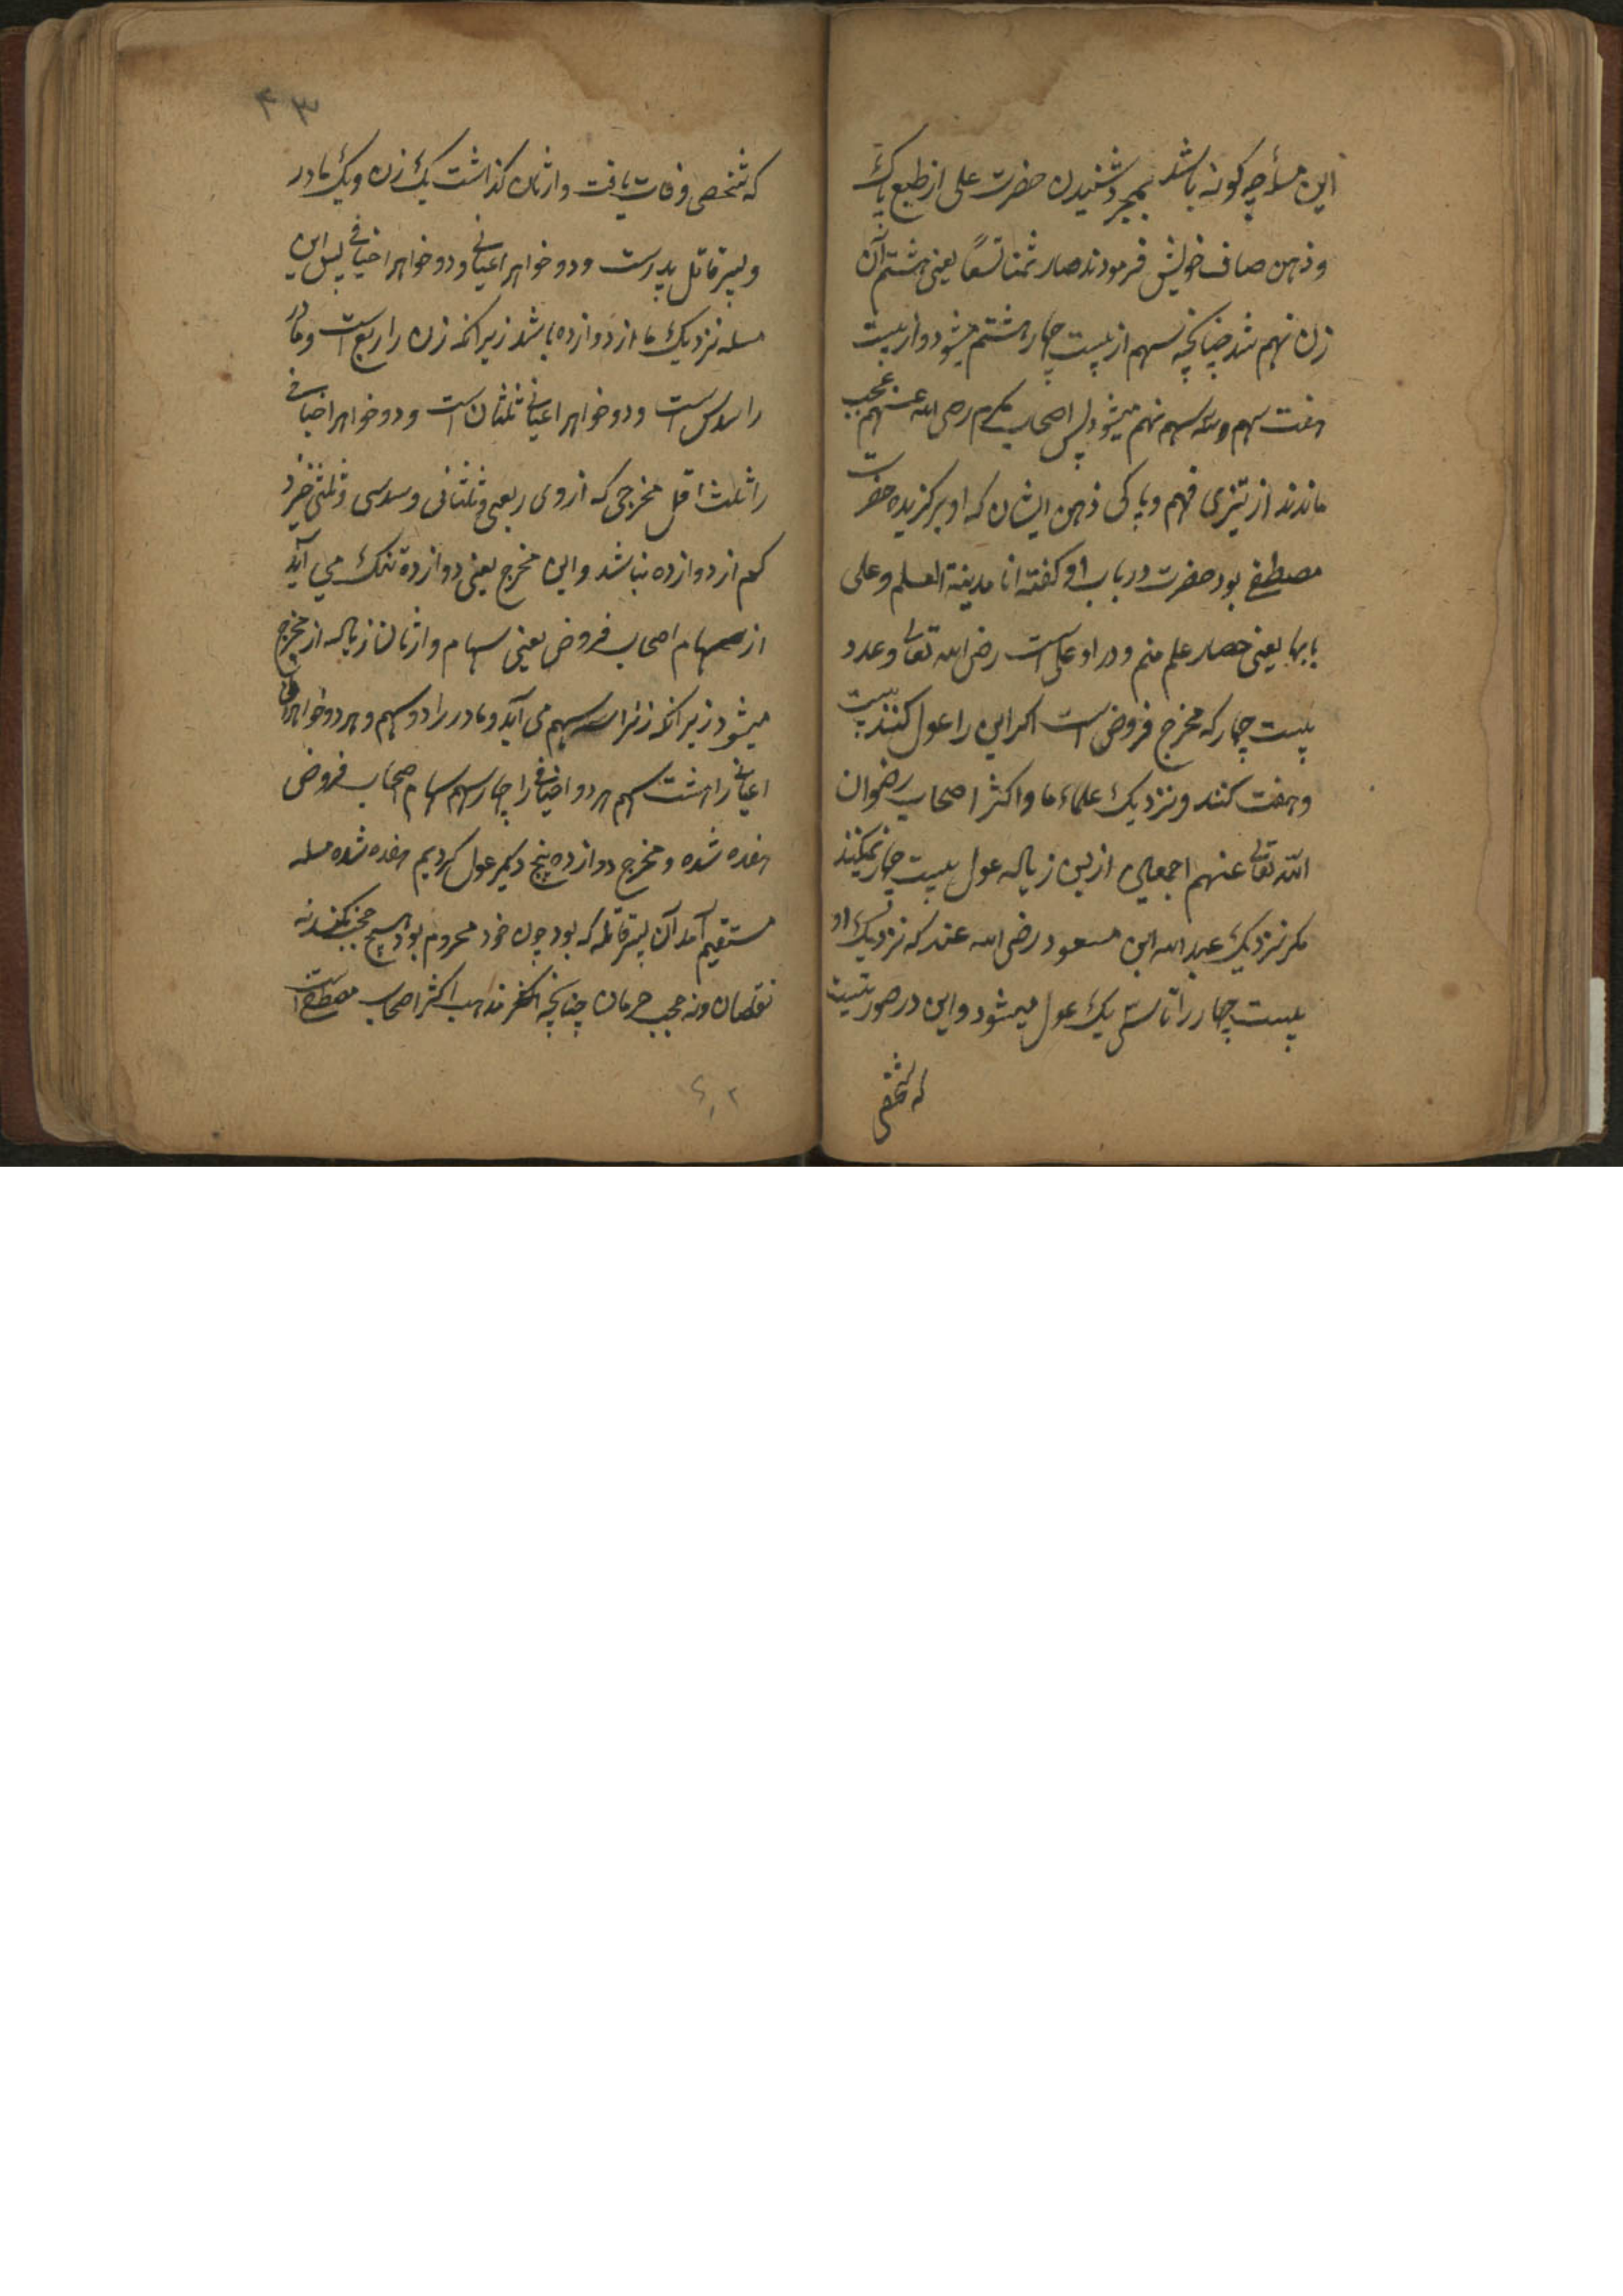 این مسأ چه کونه باشد بمجرد شنیدن حضرت علی از طبع پاک
و ذهن صاف خویش فرمودند صار ثمنا تسعًا یعنی هشتم آن
زن نهم شد چنانچه سهم از بیست چهار هشتم میشود و از بیست
هفت سهم و سه سهم نهم میشود پس اصحاب مکرم رضی الله عنهم عجب
ماندند از تیزی فهم و پاکی ذهن ایشان که او برکزیده حضرت
مصطفے بود حضرت در باب او کفته انا مدینة العلم و علی
بابها یعنی حصار علم منم و در او علی است رضی الله تعالی و عدد
بیست چهار که مخرج فروض است اکر این را عول کنند بیست
و هفت کنند و نزدیک علماء ما و اکثر اصحاب رضوان
الله تعالی عنهم اجمعین ازین زیاله عول بیست چهار نمیکنند
مکر نزدیک عبد الله ابن مسعود رضی الله عنه که نزدیک او
بیست چهار را تا سی یک عول میشود و این در صورتیست
که شخصی
۴۳
که شخصی وفات یافت وارثان کذاشت یک زن و یک مادر
و پسر قاتل پدرست و دو خواهر اعیانے و دو خواهر اخیافے پس این
مسله نزدیک ما از دوازده باشد زیرانکه زن را ربع است و مادر
را سدس است و دو خواهر اعیانے ثلثان است و دو خواهر اخیافے
را ثلث اقل مخرجی که از وی ربعی و ثلثانی و سدسی و ثلثی خیزد
کم از دوازده نباشد و این مخرج یعنی دوازده تنک می آید
از سهام اصحاب فروض یعنی سهام وارثان زیاله از مخرج
میشود زیرانکه زنرا سه سهم می آید و مادر را دو سهم و هر دو خواهران
اعیانے را هشت سهم هر دو اخیافے را چار سهم سهام اصحاب فروض
هفده شده و مخرج دوازده پنج دیکر عول کردیم هفده شده مسله
مستقیم آمد آن پسر قاتله که بود چون خود محروم بود هیچ حجب نکند نه
نقصان و نه حجب حرمان چنانچه مذاهب اکثر اصحاب مصطفے است